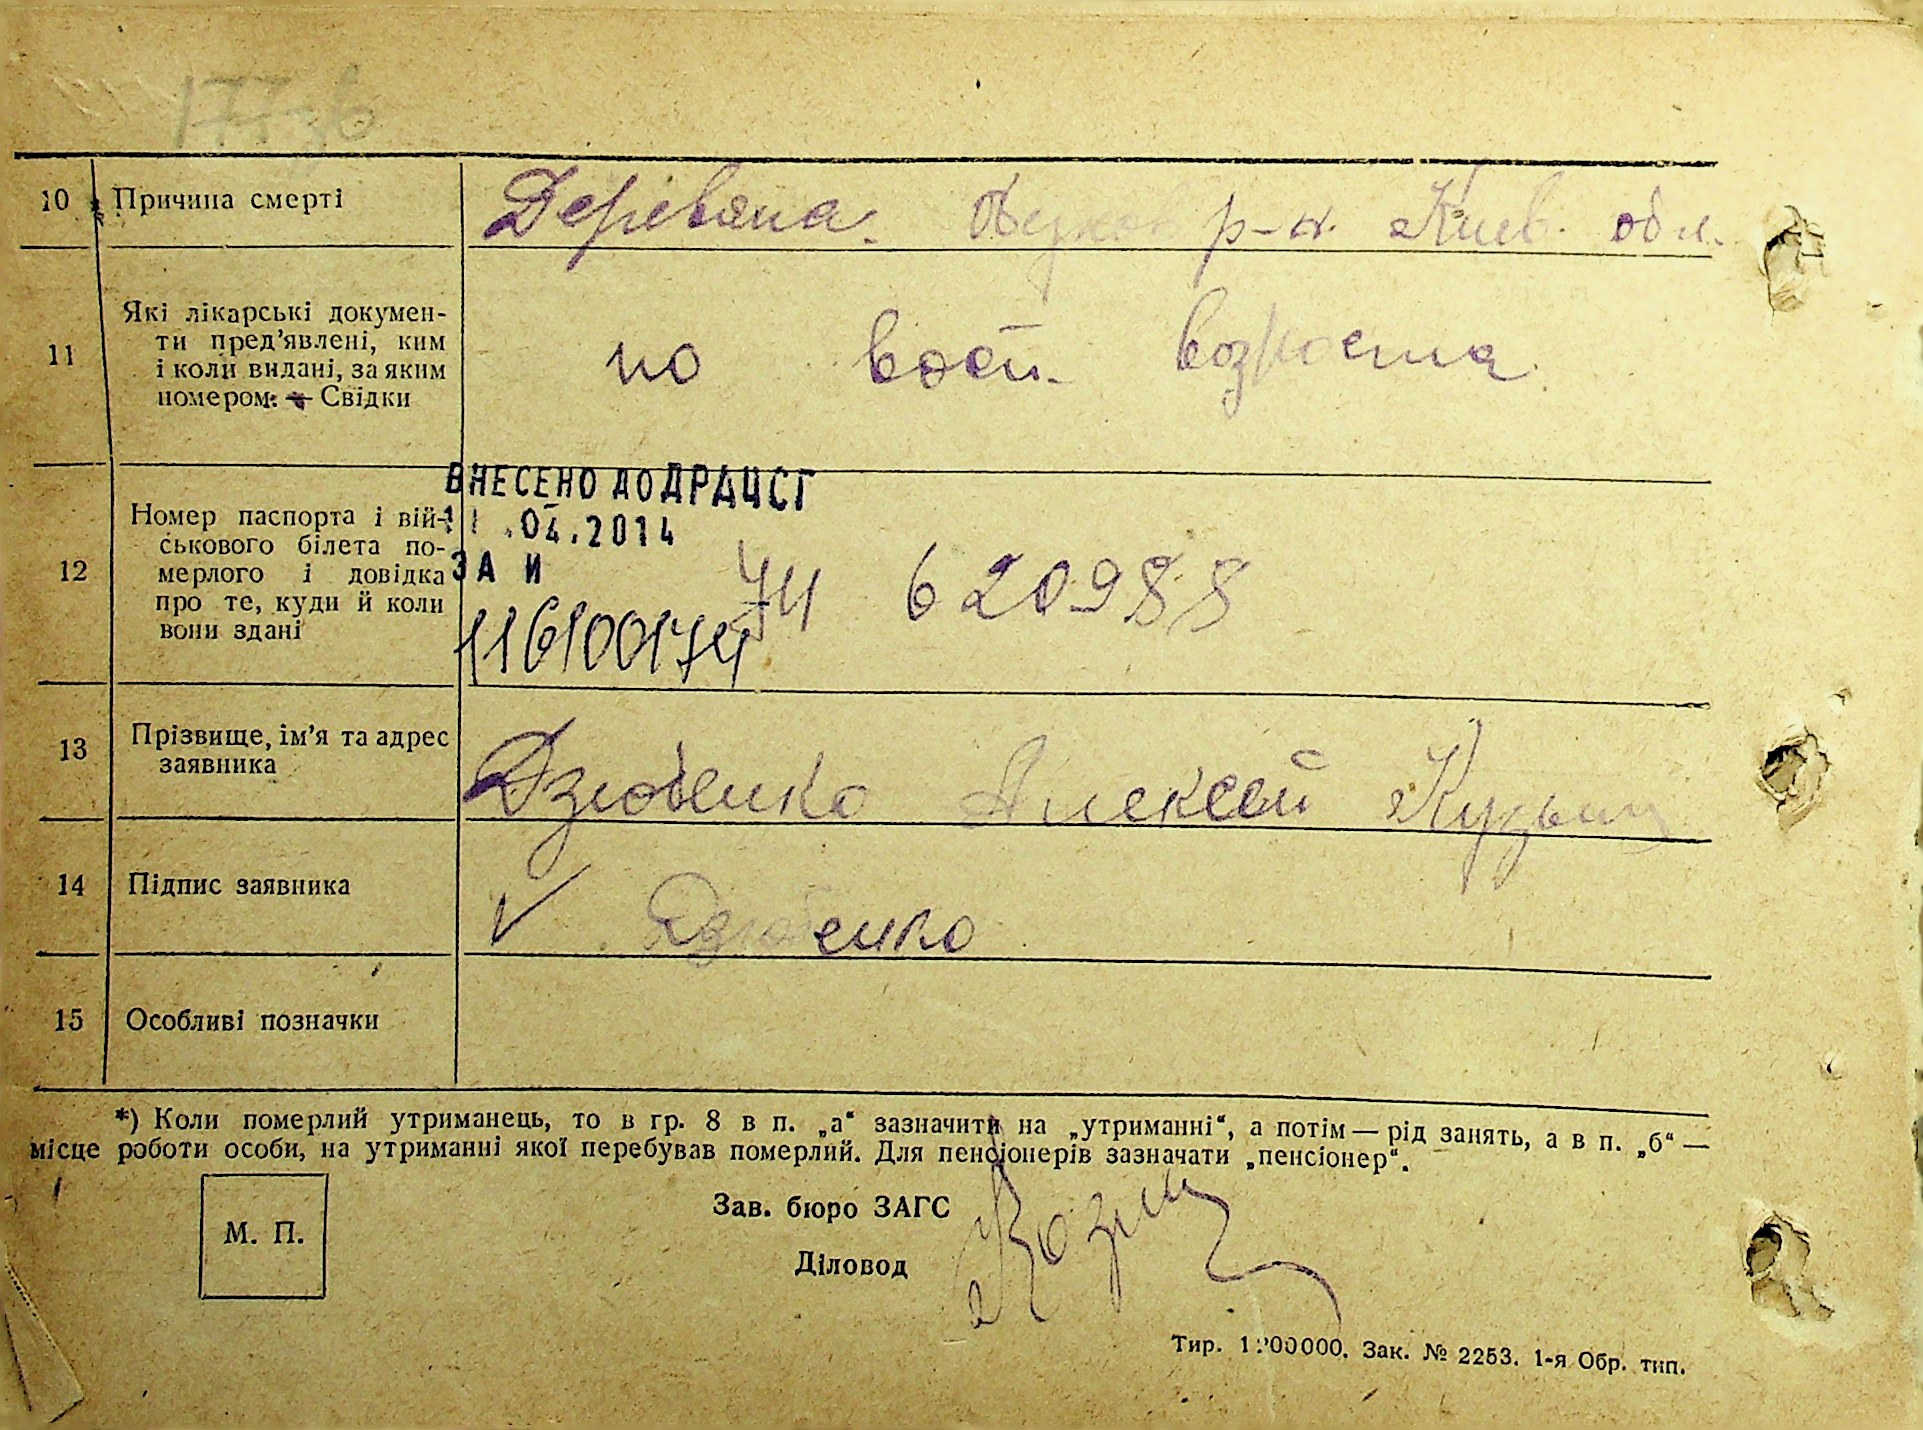 177зв
10 Причина смерті Деревяна. р-н. Киев. обл.
11 Які лікарські докумен-
ти пред'явлені, ким
і коли видані, за яким
номером: Свідки
по возраста.
12 Номер паспорта і вій-
ськового білета по-
мерлого і довідка
про те, куди й коли
вони здані
ВНЕСЕНО ДО ДРАЦСГ
11.04.2014
ЗА И
620988
1161001741
13 Прізвище, ім'я та адрес
заявника
Дзюбенко Алексей Кузьм
14 Підпис заявника
Дзюбенко
15 Особливі позначки
*) Коли померлий утриманець, то в гр. 8 в п. „а“ зазначити на „утриманні“, а потім — рід занять, а в п. „б“ —
місце роботи особи, на утриманні якої перебував померлий. Для пенсіонерів зазначати „пенсіонер“.
М. П.
Зав. бюро ЗАГС
Діловод
Тир. 1200000. Зак. № 2253. 1-я Обр. тип.